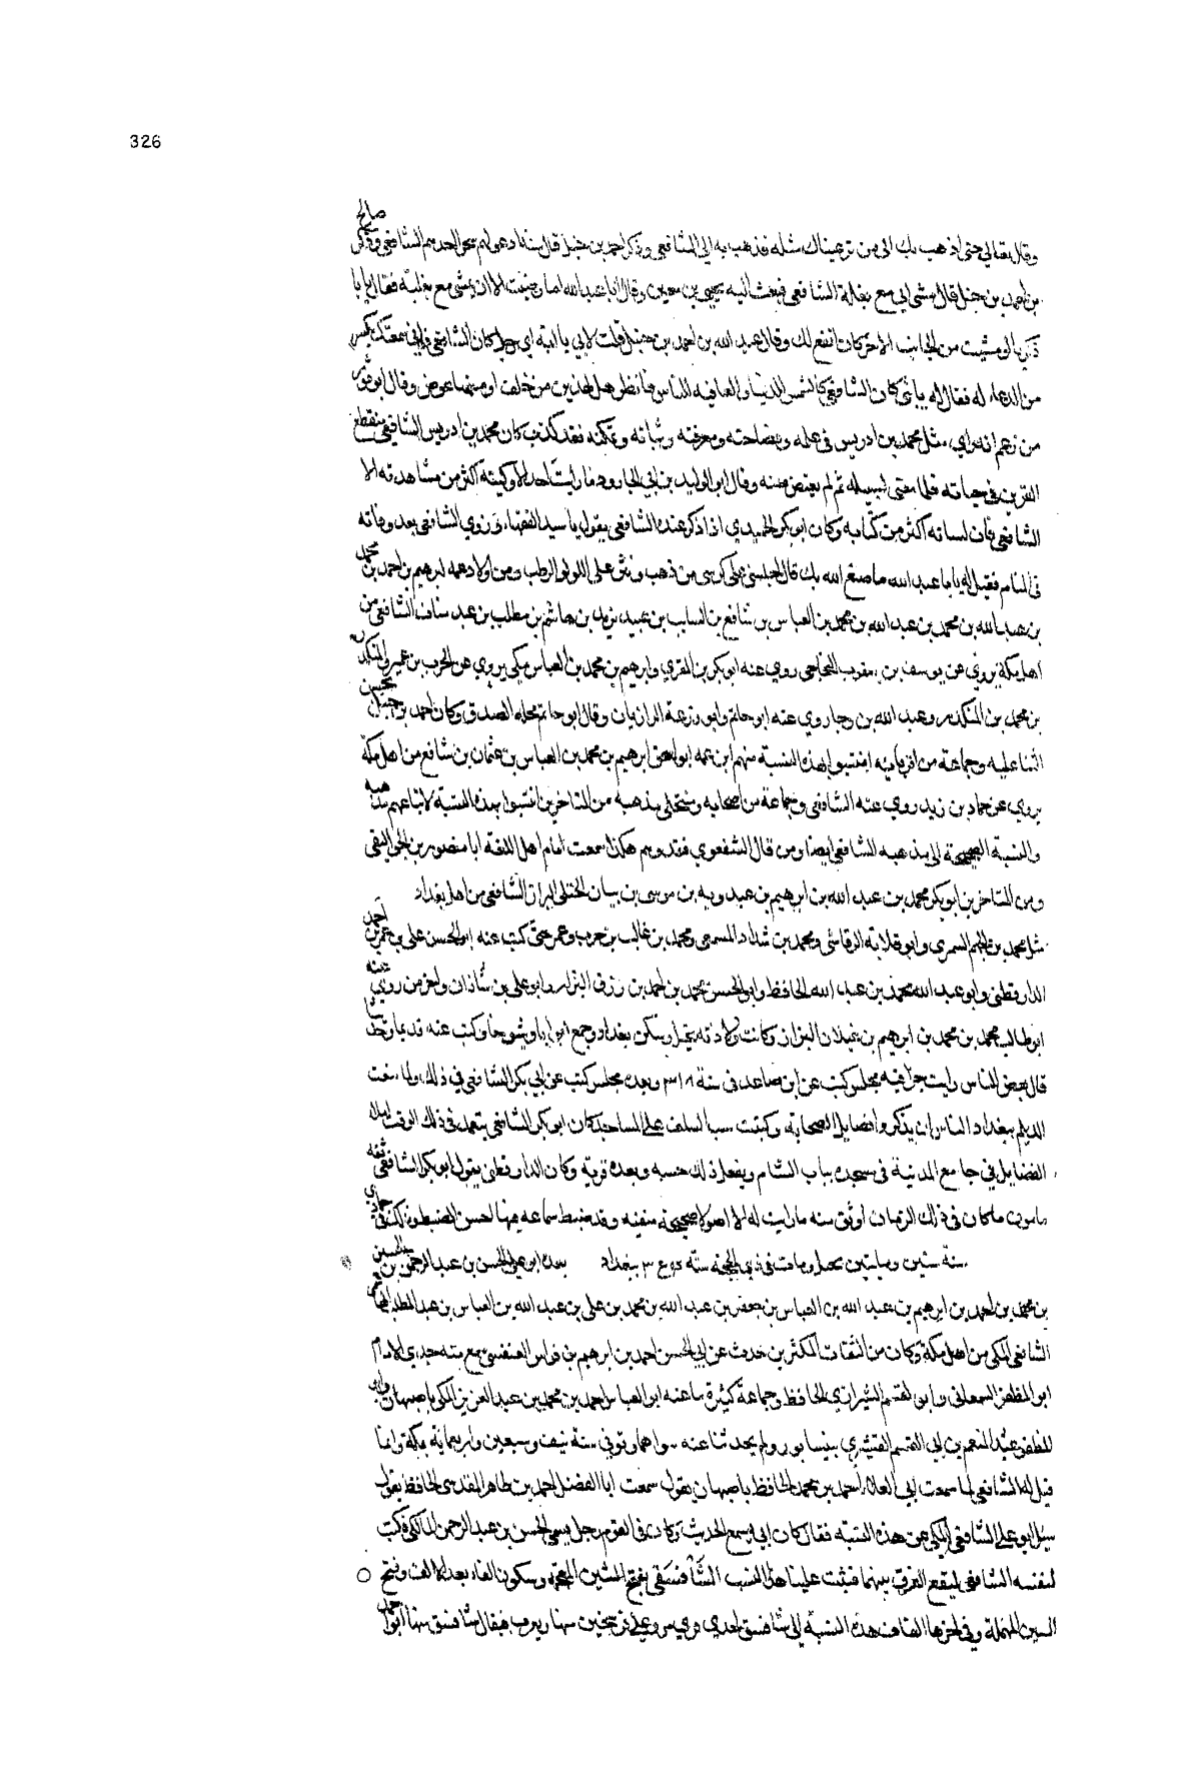 326
صالح
وقال تعالى حتى اذهب بك الى من لم تر عيناك مثله فذهب به الى الشافعي وذكر احمد بن حنبل قال ستة ادعو لهم سحرا احدهم الشافعي وذكر
بن احمد بن حنبل قال مشى ابي مع بغلة الشافعي فبعث اليه يحيى بن معين وقال ابا عبد الله اما رضيت الا ان تمشي مع بغلته فقال يا با
زكريا لو مشيت من الجانب الاخر كان انفع لك وقال عبد الله بن احمد بن حنبل قلت لابي يا ابة اي رجل كان الشافعي فاني سمعتك تكثر
من الدعاء له فقال له يا بني كان الشافعي كالشمس للدنيا والعافية للناس فانظر هل لهذين من خلف او منهما عوض وقال ابو ثور
من زعم انه راى مثل محمد بن ادريس في علمه وفصاحته ومعرفته وثباته وتمكنه فقد كذب كان محمد بن ادريس الشافعي منقطع
القرين في حياته فلما مضى لسبيله لم يعتض منه وقال ابو الوليد بن ابي الجارود ما رايت احدا الا وكتبه اكثر من مشاهدته الا
الشافعي فان لسانه اكثر من كتابه وكان ابو بكر الحميدي اذا ذكر عنده الشافعي يقول يا سيد الفقهاء وروي الشافعي بعد وفاته
في المنام فقيل له يا با عبد الله ما صنع الله بك قال اجلسني على كرسي من ذهب ونثر علي اللولو الرطب ومن اولاد عمه ابرهيم بن احمد بن محمد
بن عبد الله بن محمد بن عبد الله بن محمد بن العباس بن شافع بن السايب بن عبيد بن يزيد بن هاشم بن مطلب بن عبد مناف الشافعي من
اهل مكة يروي عن يوسف بن يعقوب النجاحي روى عنه ابو بكر بن المقري وابرهيم بن محمد بن العباس مكي يروي عن الحرث بن عمير والمنكدر
بن محمد بن المنكدر وعبد الله بن رجا روى عنه ابو حاتم وابو زرعة الرازيان وقال ابو حاتم محله الصدق وكان احمد بن حنبل يحسن
الثنا عليه وجماعة من اقربايه انتسبوا بهذه النسبة منهم ابن عمه ابو اسحق ابرهيم بن محمد بن العباس بن عثمان بن شافع من اهل مكة
يروي عن حماد بن زيد روى عنه الشافعي وجماعة من اصحابه ومنتحلي مذهبه من المتاخرين انتسبوا بهذه النسبة لاتباعهم مذهبه
والنسبة الصحيحة الى مذهبه الشافعي ايضا ومن قال الشفعوي فقد وهم هكذا سمعت امام اهل اللغة ابا منصور بن الجواليقي
ومن المتاخرين ابو بكر محمد بن عبد الله بن ابرهيم بن عبدويه بن موسى بن بيان الختلي البزاز الشافعي من اهل بغداد
مثل محمد بن الجهم السمري وابو قلابة الرقاشي ومحمد بن شداد المسمعي ومحمد بن غالب بن حرب وعمر حتى كتب عنه ابو الحسن علي بن عمر بن احمد
الدارقطني وابو عبد الله محمد بن عبد الله الحافظ وابو الحسن محمد بن احمد بن رزق البزاز وابو علي بن شاذان واخر من روى عنه
ابو طالب محمد بن محمد بن ابرهيم بن غيلان البزاز وكانت ولادته بجبل وسكن بغداد وجمع ابوابا وشيوخا وكتب عنه قديما
قال بعض الناس رايت جزا فيه مجلس كتب عن ابن صاعد في سنة ٣١٨ وبعده مجلس كتب عن ابي بكر الشافعي في ذلك ولما منعت
الديلم ببغداد الناس ان يذكروا فضايل الصحابة وكتبت سب السلف على المساجد كان ابو بكر الشافعي يتعمد في ذلك الوقت املاء
الفضايل في جامع المدينة في مسجده بباب الشام ويفعل ذلك حسبه ويعده قربة وكان الدارقطني يقول ابو بكر الشافعي ثقة
مامون ما كان في ذلك الزمان اوثق منه ما رايت له الا اصولا صحيحة متقنة وقد ضبط سماعه فيها احسن الضبط
سنة ستين ومايتين بجبل ومات في ذي الحجة سنة ببغداد بعده ابو علي الحسن بن عبد الرحمن بن الحسين
بن محمد بن احمد بن ابرهيم بن عبد الله بن العباس بن جعفر بن عبد الله بن محمد بن علي بن عبد الله بن العباس بن عبد المطلب
الشافعي المكي من اهل مكة وكان من الثقات المكثرين حدث عن ابي الحسن احمد بن ابرهيم بن فراس العبقسي سمع منه جدي الامام
ابو المظفر السمعاني وابو القسم الشيرازي الحافظ وجماعة كثيرة ثنا عنه ابو العباس احمد بن محمد بن عبد العزيز المكي باصبهان وابو
المظفر عبد المنعم بن ابي القسم القشيري بنيسابور ولم يحدثنا عنه سواهما وتوفي سنة نيف وسبعين واربعماية بمكة وانما
قيل له الشافعي لما سمعت ابي العلاء احمد بن محمد الحافظ باصبهان يقول سمعت ابا الفضل محمد بن طاهر المقدسي الحافظ يقول
سئل ابو علي الشافعي المكي عن هذه النسبة فقال كان ابي يسمع الحديث وكان في القوم رجل يسمى الحسن بن عبد الرحمن المالكي فكتب
لنفسه الشافعي ليقع الفرق بينهما فثبت علينا هذا النسب الشافسقي بفتح الشين المعجمة وسكون الفاء بعد الالف وفتح
السين المهملة وفي اخرها القاف هذه النسبة الى شافسق احدى قرى مرو على فرسخين منها ويعرب فيقال شافسق منها ابو احمد